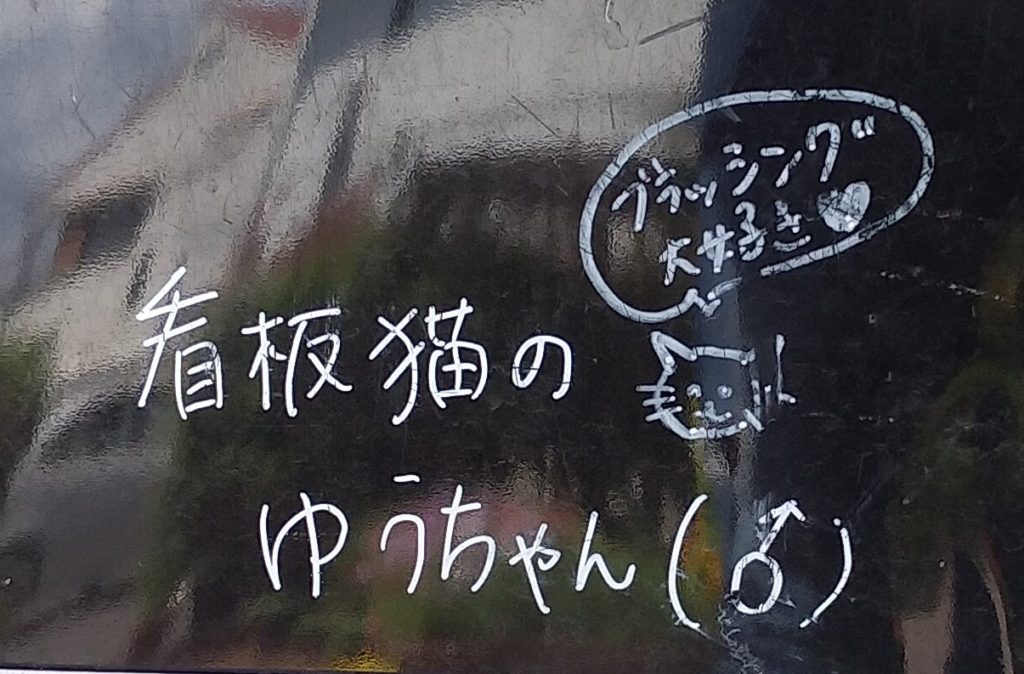 ブラッシング
大好き♥
看板猫の
ゆうちゃん(♂)